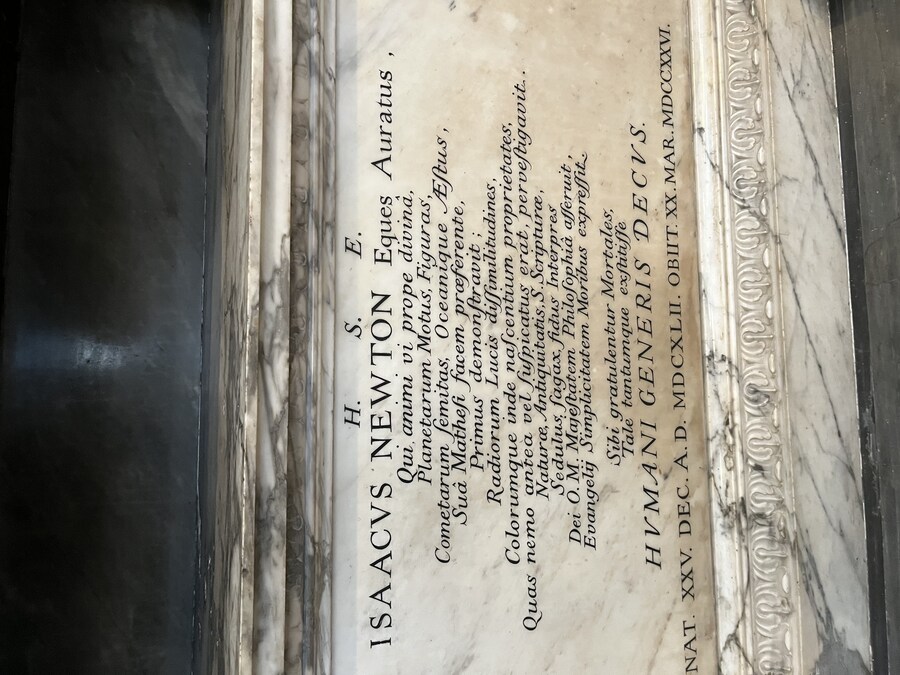 H. S. E.
ISAACVS NEWTON Eques Auratus,
Qui animi vi prope divinâ,
Planetarum Motus, Figuras,
Cometarum ſemitas, Oceanique Æſtus,
Suâ Matheſi facem præferente,
Primus demonſtravit:
Radiorum Lucis diſſimilitudines,
Colorumque inde naſcentium proprietates,
Quas nemo antea vel ſuſpicatus erat, perveſtigavit.
Naturæ, Antiquitatis, S. Scripturæ,
Sedulus, ſagax, fidus Interpres
Dei O. M. Majeſtatem Philoſophiâ aſſeruit,
Evangelij Simplicitatem Moribus expreſſit.
Sibi gratulentur Mortales,
Tale tantumque exſtitiſſe
HVMANI GENERIS DECVS.
NAT. XXV. DEC. A. D. MDCXLII. OBIIT. XX. MAR. MDCCXXVI.